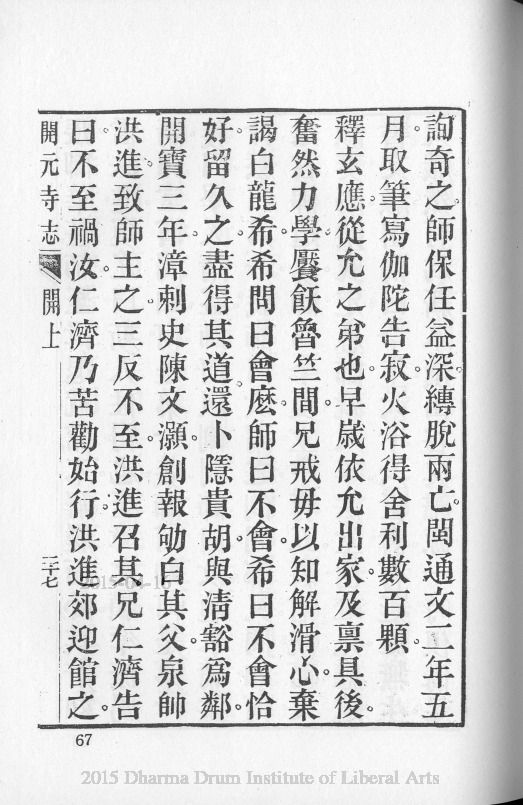 詢奇之。師保任益深。縛脫兩亡。閩通文二年五
月。取筆寫伽陀告寂。火浴得舍利數百顆。
釋玄應。從允之弟也。早歲依允出家。及禀具後。
奮然力學。饜飫魯竺間。兄戒毋以知解滑心。棄
謁白龍希。希問曰會麼。師曰不會。希曰不會恰
好。留久之。盡得其道。還卜隱貴胡。與清豁爲鄰。
開寶三年。漳刺史陳文灝。創報劬。白其父泉帥
洪進。致師主之。三反不至。洪進召其兄仁濟告
曰。不至禍汝。仁濟乃苦勸始行。洪進郊迎館之。
開元寺志 開上 三十七
67
2015 Dharma Drum Institute of Liberal Arts